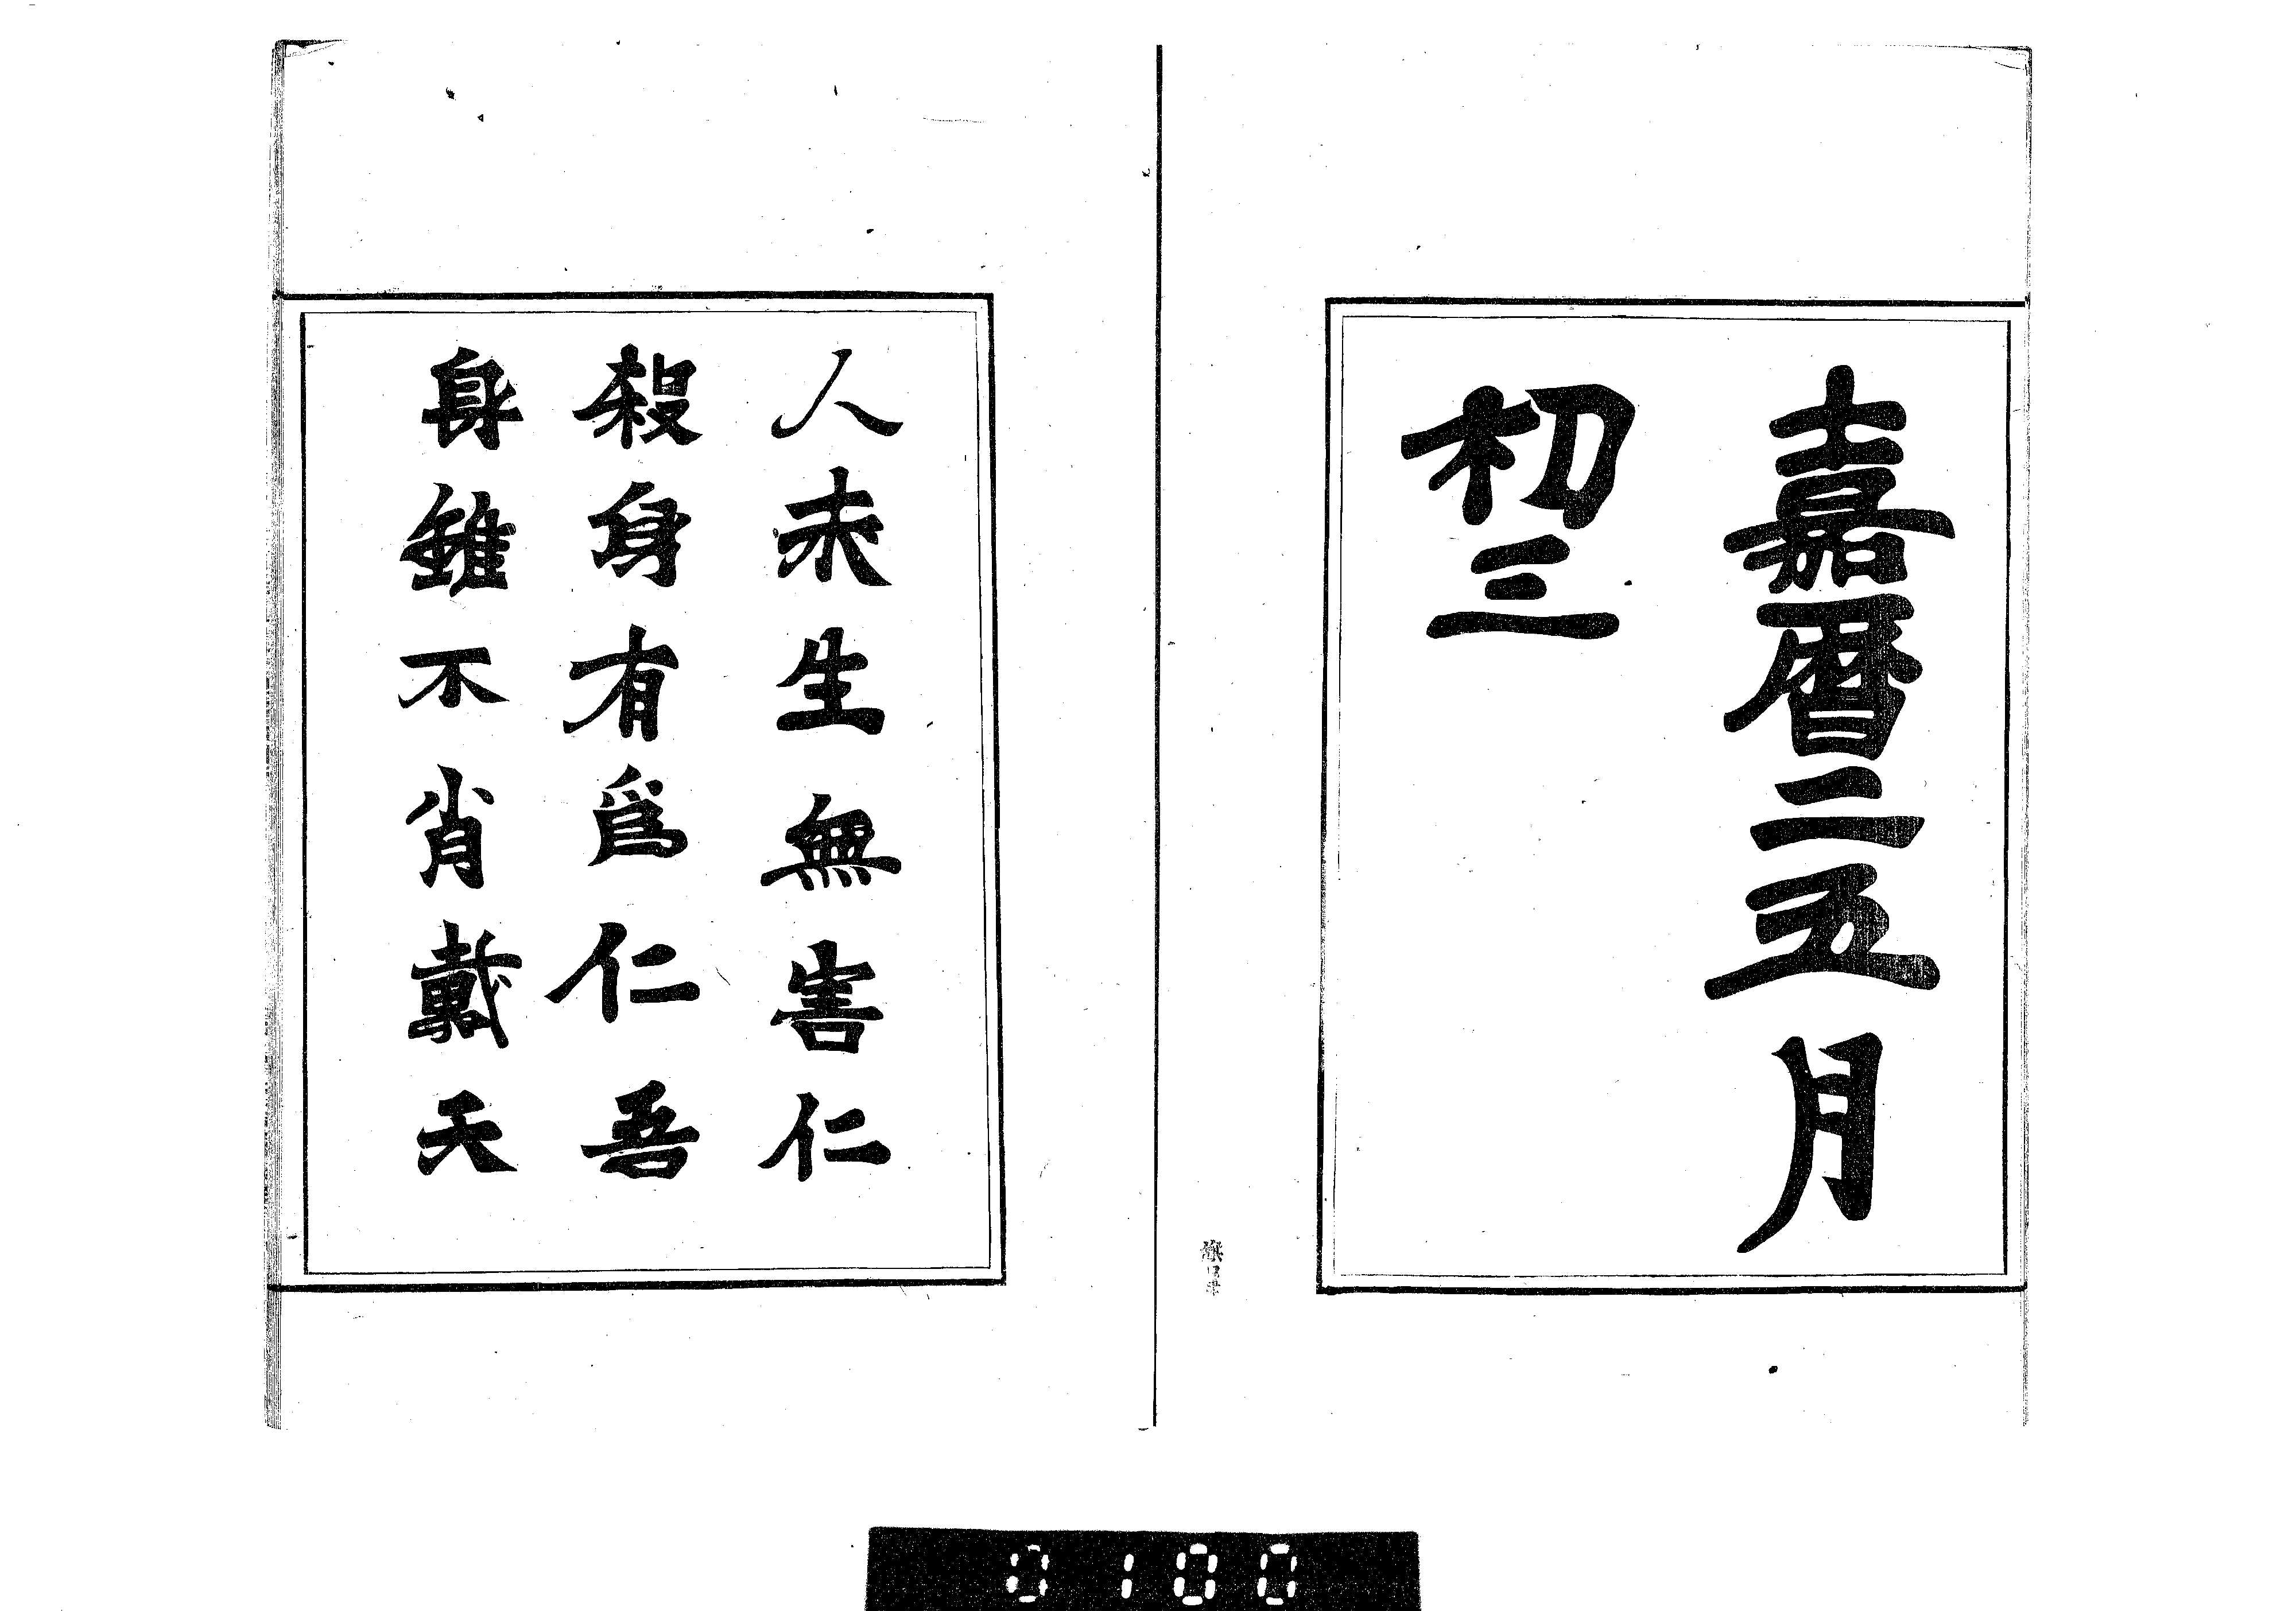 嘉暦二五月
初三
人未生無害仁
殺身有為仁吾
身雖不肖戴天
0100